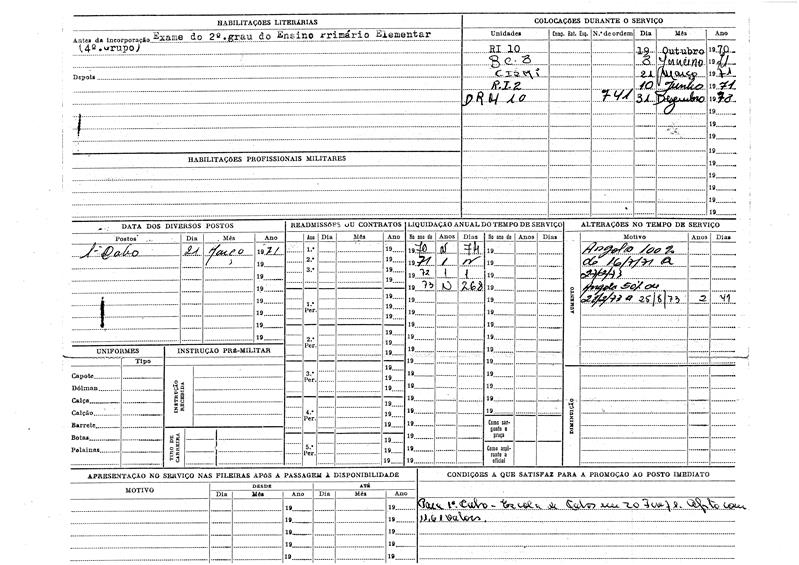 HABILITAÇÕES LITERÁRIAS
Antes da incorporação Exame do 2º.grau do Ensino Primário Elementar
(4º.Grupo)
Depois
HABILITAÇÕES PROFISSIONAIS MILITARES
COLOCAÇÕES DURANTE O SERVIÇO
Unidades Comp. Bat. Esq. N.º de ordem Dia Mês Ano
RI 10 19 Outubro 1970
3 1971
21 Março 1971
R.I.2 10 Junho 1971
DRM 10 741 31 Dezembro 1973
19
19
19
19
19
19
19
19
19
DATA DOS DIVERSOS POSTOS
Postos Dia Mês Ano
1º Cabo 21 Março 1971
19
19
19
19
19
19
READMISSÕES OU CONTRATOS
Ano Dia Mês Ano
1.º 19
2.º 19
3.º 19
19
1.º Per. 19
19
2.º Per. 19
19
3.º Per. 19
19
4.º Per. 19
19
5.º Per. 19
19
LIQUIDAÇÃO ANUAL DO TEMPO DE SERVIÇO
No ano de Anos Dias No ano de Anos Dias
1970 N 74 19
1971 1 N 19
1972 1 1 19
1973 N 268 19
19 19
19 19
19 19
19 19
19 19
19 19
19 19
19 19
19 Como sargento e praça
19
19 Como aspirante a oficial
19
ALTERAÇÕES NO TEMPO DE SERVIÇO
Motivo Anos Dias
AUMENTO
Angola 100%
de 16/7/71 a
Angola 50% de
a 25/8/73 2 41
DIMINUIÇÃO
UNIFORMES
Tipo
Capote
Dólman
Calça
Calção
Barrete
Botas
Polainas
INSTRUÇÃO PRÉ-MILITAR
INSTRUÇÃO RECEBIDA
TIRO DE CARREIRA
APRESENTAÇÃO NO SERVIÇO NAS FILEIRAS APÓS A PASSAGEM À DISPONIBILIDADE
MOTIVO DESDE ATÉ
Dia Mês Ano Dia Mês Ano
19 19
19 19
19 19
19 19
19 19
CONDIÇÕES A QUE SATISFAZ PARA A PROMOÇÃO AO POSTO IMEDIATO
Para 1º Cabo - Escola de Cabos em 20 Apto com
11,61 valores.